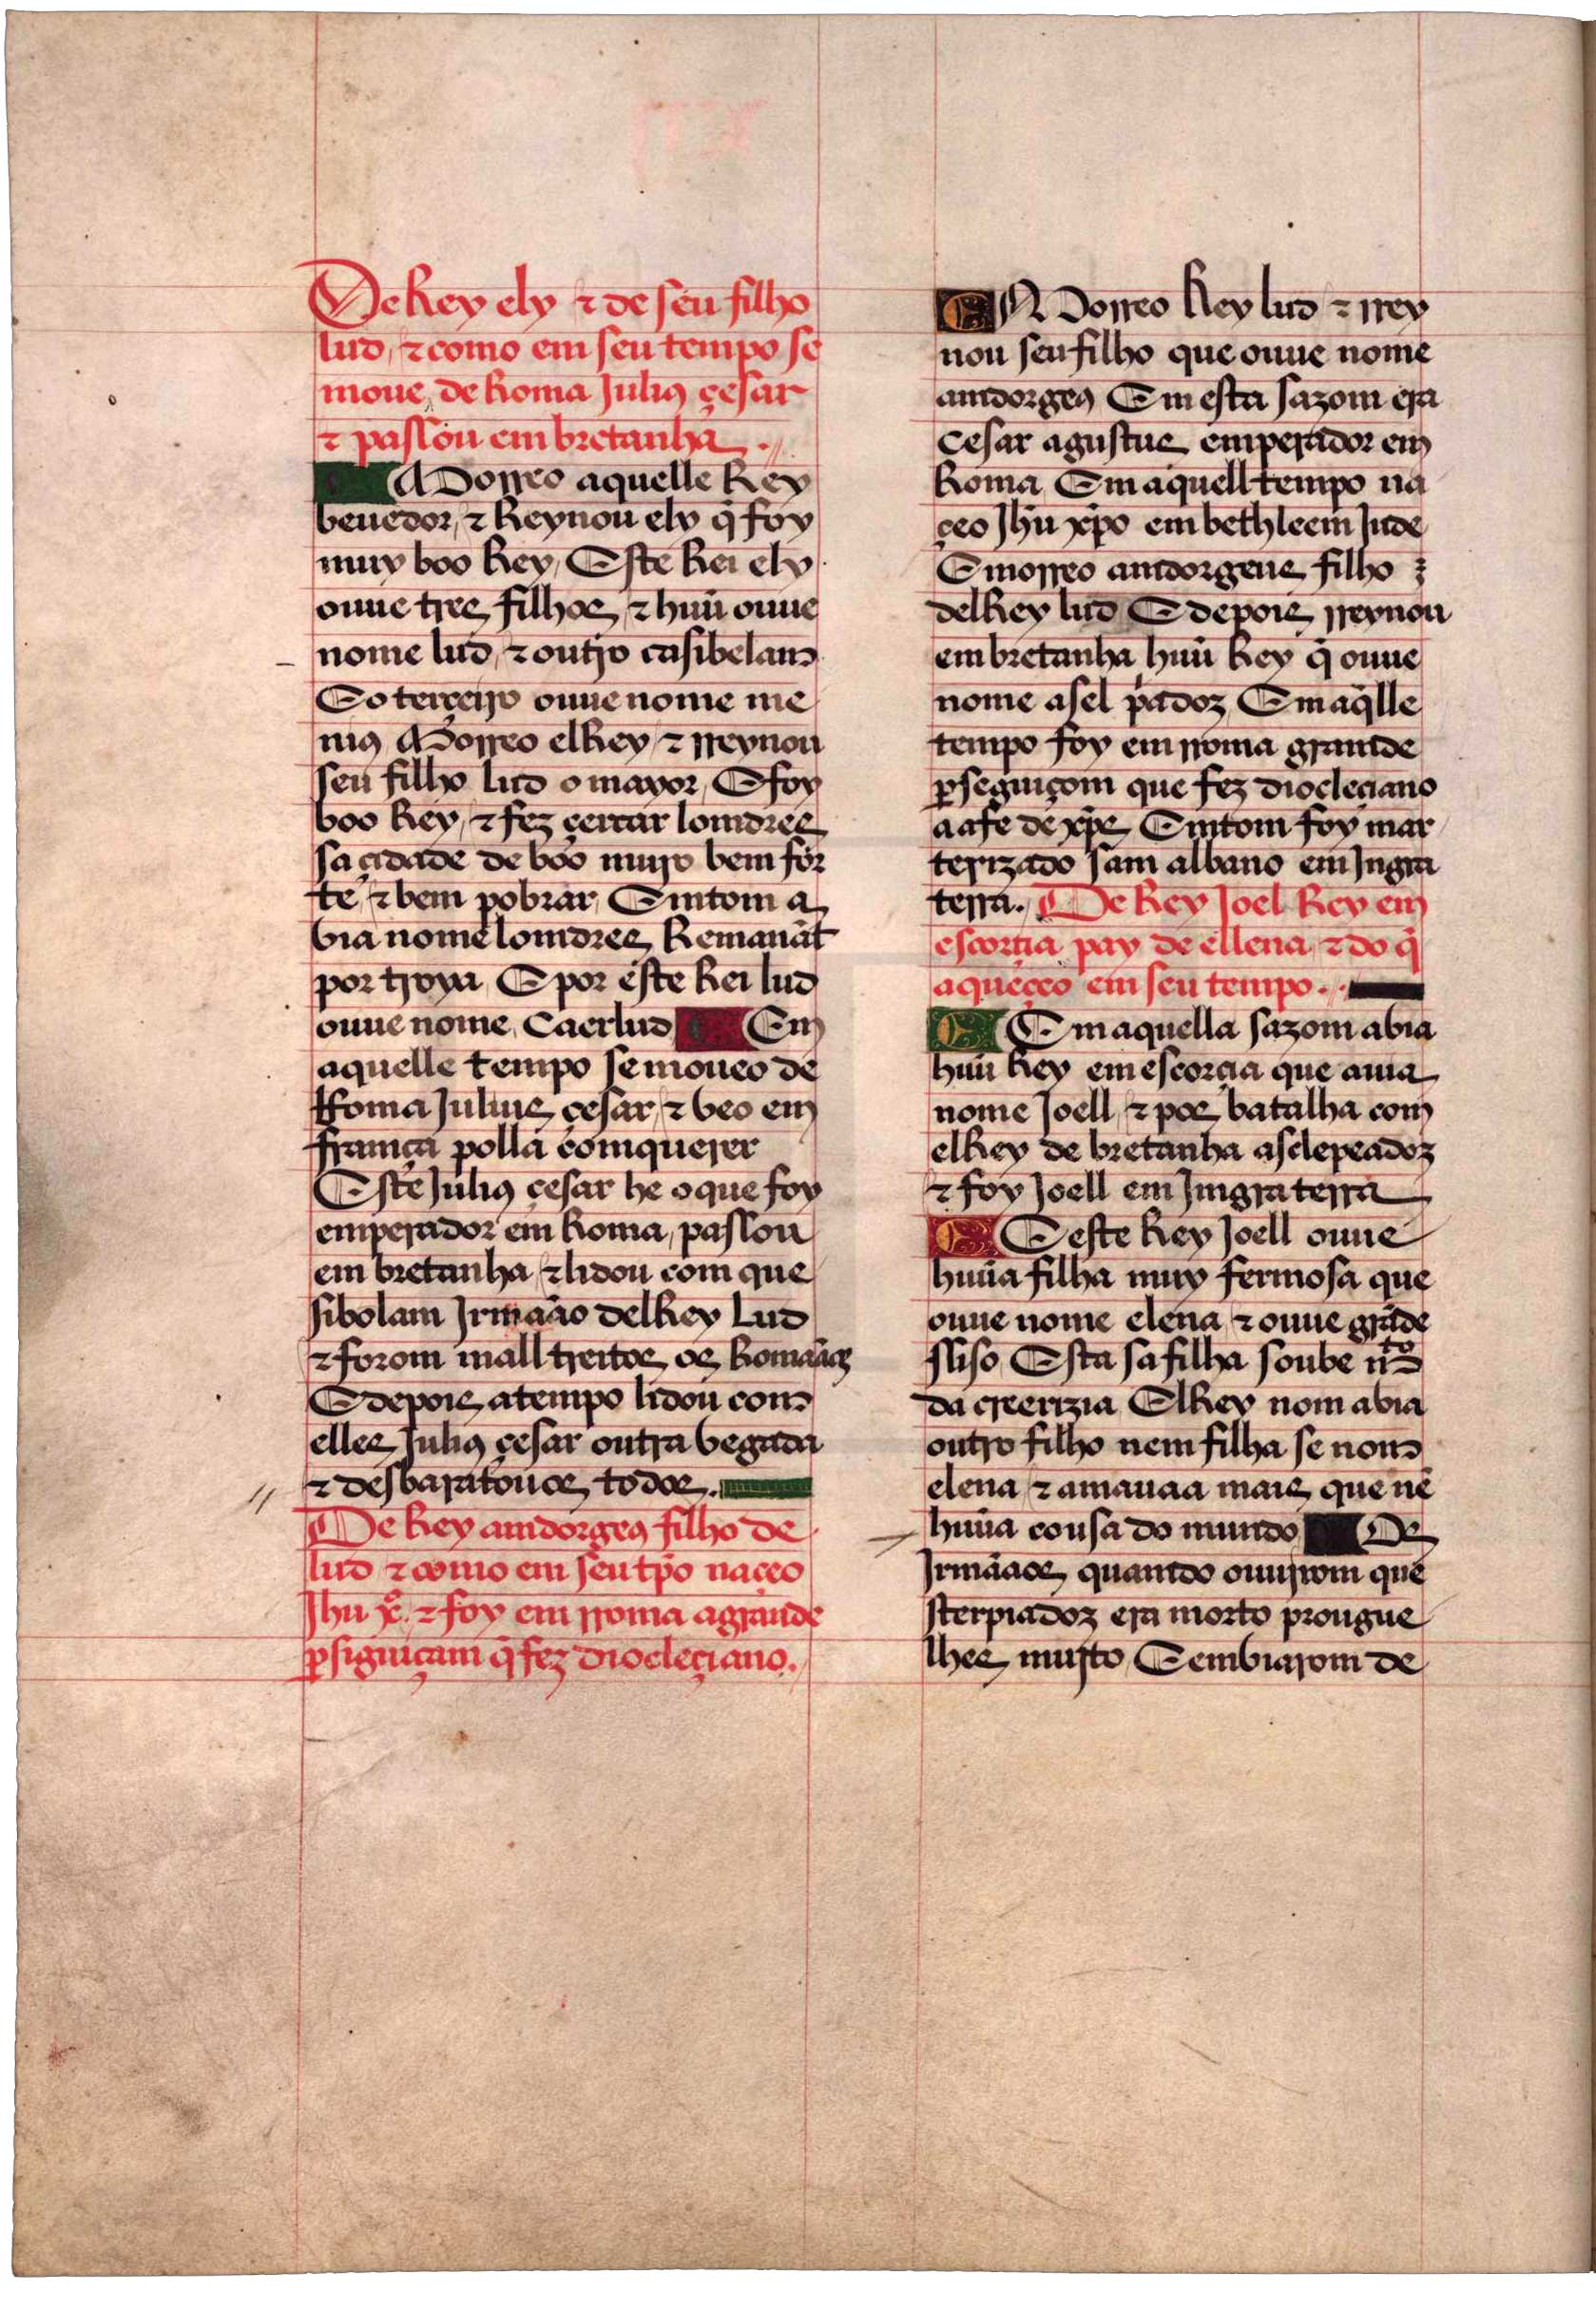 De Rey ely ⁊ de seu filho
lud, ⁊ como em seu tempo se
moue, de Roma Julio çesar
⁊ passou em bretanha.
Morreo aquelle Rey
beuedor, ⁊ Reynou ely q̃ foy
muy boo Rey, Este Rei ely
ouue tres filhos, ⁊ huũ ouue
nome lud, ⁊ outro casibelam
E o terçeiro ouue nome me
nius Morreo elRey, ⁊ rreynou
seu filho lud o mayor, E foy
boo Rey, ⁊ fez çercar lomdres
sa çidade de boo muro bem for
te, ⁊ bem pobrar, Emtom a
via nome lomdres Remanãt
por troya, E por este Rei lud
ouue nome, Caerlud Em
aquelle tempo se moueo de
Roma Julius çesar, ⁊ veo em
framça polla comquerer
Este Julius çesar he o que foy
emperador em Roma, passou
em bretanha, ⁊ lidou com que
sibolam Jrmaão delRey Lud
⁊ forom mall treitos os Romaãos
E depois a tempo lidou com
elles Julius çesar outra vegada
⁊ desbaratouos, todos.
De Rey amdorgeus filho de
lud ⁊ como em seu tp̃o naçeo
Jhũ xº. ⁊ foy em rroma a grande
ꝑsiguiçam q̃ fez diocleçiano.
Morreo Rey lud ⁊ rrey
nou seu filho que ouue nome
amdorgeus Em esta sazom era
Cesar agustus emperador em
Roma, Em aquell tempo na
çeo Jhũ xp̃o em bethleem Jude
E morreo amdorgeus filho
delRey lud E depois rreynou
em bretanha huũ Rey q̃ ouue
nome asel p̃adoz, Em aq̃lle
tempo foy em rroma gramde
ꝑseguiçom que fez diocleciano
a a fe de xp̃s, Emtom foy mar
terizado sam albano em Jngra
terra. De Rey Joel Rey em
escorçia pay de ellena ⁊ do q̃
aqueçeo em seu tempo.
Em aquella sazom abia
huũ Rey em escorçia que avia
nome Joell, ⁊ pos batalha com
elRey de bretanha asclepeadoz
⁊ foy Joell em Jmgra terra
E este Rey Joell ouue
huũa filha muy fermosa que
ouue nome elena, ⁊ ouue grãde
ssiso Esta sa filha soube m̃to
da creerizia ElRey nom abia
outro filho nem filha se nom
elena ⁊ amauaa mais que nẽ
huũa cousa do mundo Os
Jrmãaos, quamdo ouuirom que
sterpiadoz era morto prougue
lhes muito, E embiarom de